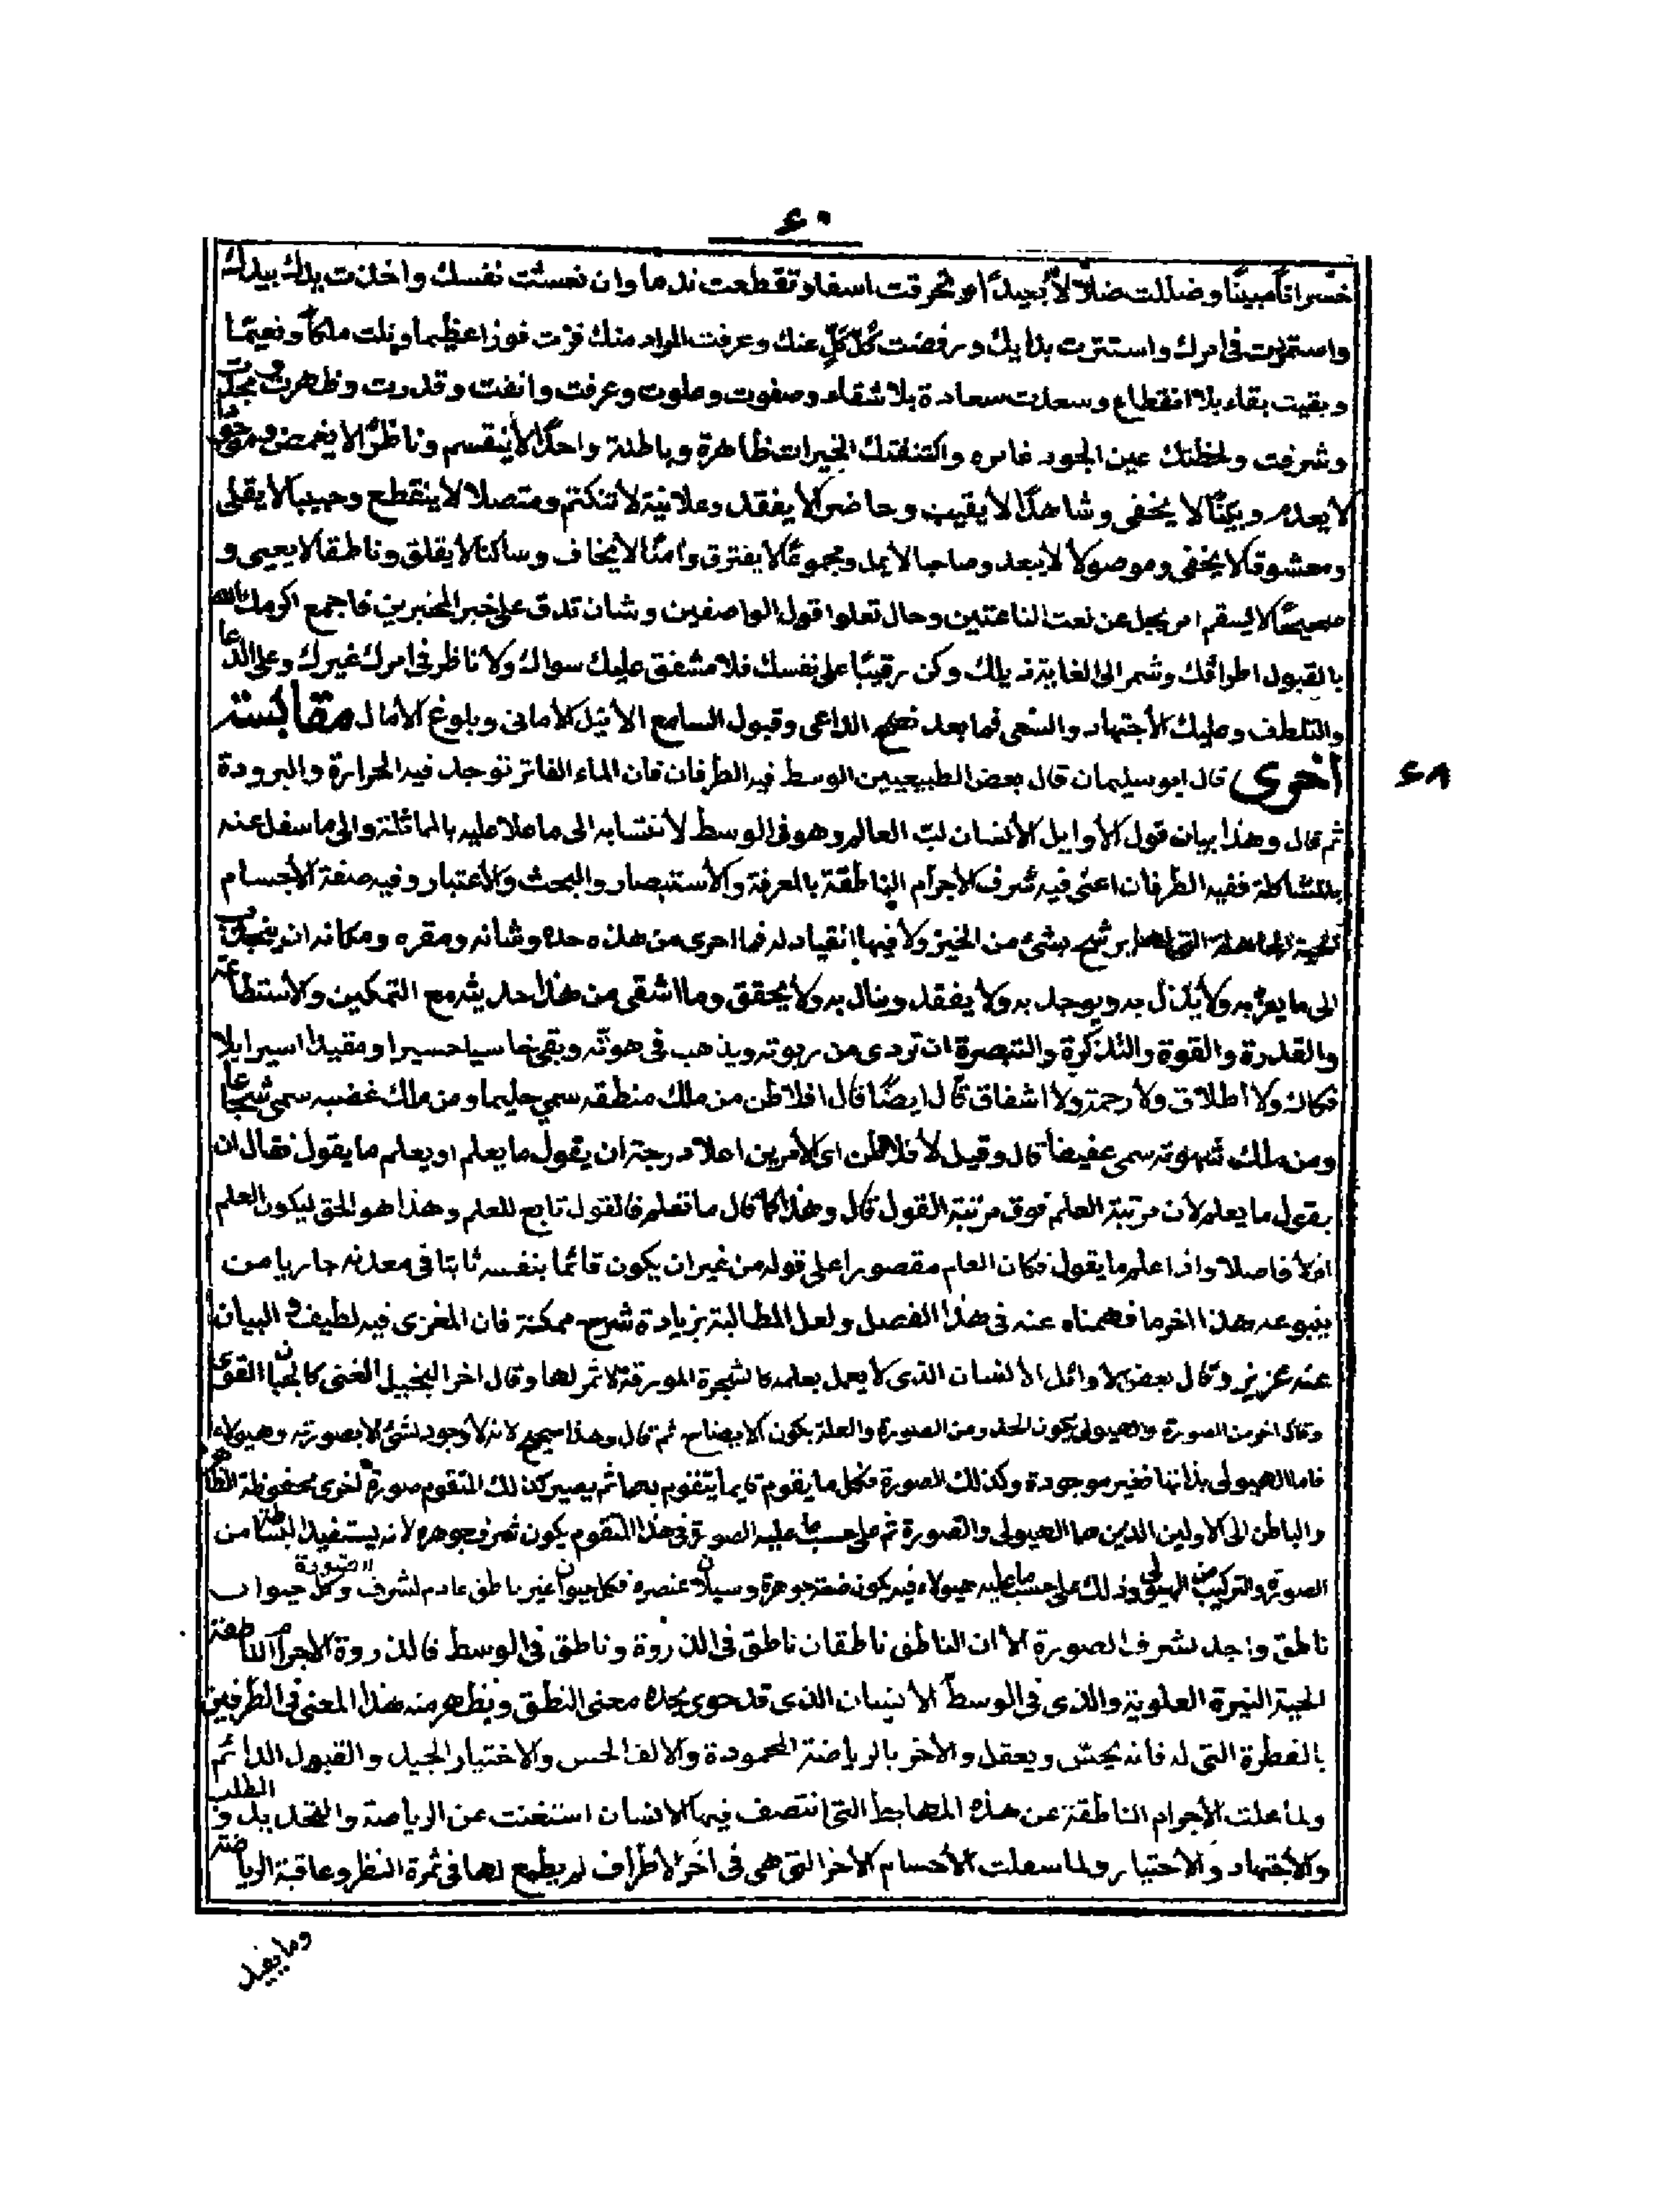 ٦٠
خسرانا مبينا وضللت ضلالا بعيدا وتحرقت اسفا وتقطعت ندما وان نعشت نفسك واخذت يدك بيدك
واستمريت في امرك واستترت بذاتك ورفضت كل كل عنك وعرفت المراد منك فزت فوزا عظيما ونلت ملكا ونعيما
وبقيت بقاء بلا انقطاع وسعدت سعادة بلا شقاء وصفوت وعلوت وعرفت وانفت وقدرت وظهرت ومجدت
وشرفت ولحظتك عين الجود غامره واكتنفتك الخيرات ظاهرة وباطنة واحدا لا ينقسم وناظرا لا يغمض وموجودا
لا يعدم وبينا لا يخفى وشاهدا لا يغيب وحاضرا لا يفقد وعلانية لا تنكتم ومتصلا لا ينقطع وحبيبا لا يقلى
ومعشوقا لا يجفى وموصولا لا يبعد وصاحبا لا يمل ومجموعا لا يفترق وامنا لا يخاف وساكنا لا يقلق وناطقا لا يعيى و
صحيحا لا يسقم امر يجل عن نعت الناعتين وحال تعلوا قول الواصفين وشان تدق على خبر المخبرين فاجمع اكرمك الله
بالقبول اطرافك وشمر الى الغاية ذيلك وكن رقيبا على نفسك فلا مشفق عليك سواك ولا ناظر في امرك غيرك وعلى الدعا
والتلطف وعليك الأجتهاد والسعى فما بعد نصح الداعى وقبول السامع الا نيل الأمانى وبلوغ الأمال مقابسة
أخرى قال ابو سليمان قال بعض الطبيعيين الوسط فيه الطرفان فان الماء الفاتر توجد فيه الحرارة والبرودة
٦٨
ثم قال وهذا بيان قول الأوايل الأنسان لب العالم وهو في الوسط لأنتسابه الى ما علا عليه بالماثلة والى ما سفل عنه
بالمشاكلة ففيه الطرفان اعنى فيه شرف الأجرام الناطقة بالمعرفة والأستبصار والبحث والأعتبار وفيه صفة الأجسام
الحية الجاهلة التى لها برشح بشئ من الخير ولا فيها انقياد له فما احرى من هذه حده وشانه ومقره ومكانه ان ينجذب
الى ما يعز به ولا يذل به ويوجد به ولا يفقد وينال به ولا يحقق وما اشقى من هذا حديثه مع التمكين والأستطاعة
والقدرة والقوة والتذكرة والتبصرة ان تردى من ربوته ويذهب في هوته وبقى خاسيا حسيرا ومقيدا اسيرا بلا
فكاك ولا اطلاق ولا رحمة ولا اشفاق قال ايضا قال افلاطن من ملك منطقه سمي حليما ومن ملك غضبه سمى شجاعا
ومن ملك شهوته سمى عفيفا قال وقيل لأفلاطن اى الأمرين اعلا درجة ان يقول ما يعلم او يعلم ما يقول فقال ان
يقول ما يعلم لأن مرتبة العلم فوق مرتبة القول قال وهذا كما قال ما تعلم فالقول تابع للعلم وهذا هو الحق ليكون العلم
اولا فاصلا واذا علم ما يقول فكان العلم مقصورا على قوله من غير ان يكون قائما بنفسه ثابتا في معدنه جاريا من
ينبوعه هذا اخر ما فهمناه عنه في هذا الفصل ولعل المطالبة بزيادة شرح ممكنة فان المغزى فيه لطيف و البيان
عنه عزيز وقال بعض الأوائل الأنسان الذى لا يعمل بعلمه كالشجرة المورقة لا ثمر لها وقال اخر البخيل الغنى كالجبان القوى
وقال اخر من الصورة والهيولى يكون الحد ومن الصورة والعلة يكون الايضاح ثم قال وهذا صحيح لانه لا وجود لشئ الا بصورته وهيولاه
فاما الهيولى بذاتها فغير موجودة وكذلك الصورة فكل ما يقوم فانما يتقوم بهما ثم يصير كذلك المتقوم صورة اخرى محفوظة الظاهر
والباطن الى الاولين الذين هما الهيولى والصورة ثم على حسب ما عليه الصورة في هذا التقوم يكون شرف جوهره لانه يستفيد البساطة من
الصورة والتركيب من الهيولى وذلك على حسب ما عليه هيولاه فيه يكون ضعة جوهره وسيلان عنصره فكل حيوان غير ناطق عادم لشرف الصورة وكل حيوان
ناطق واجد لشرف الصورة الا ان الناطق ناطقان ناطق في الذروة وناطق في الوسط فالذروة الاجرام الناطقة
الحية النيرة العلوية والذى في الوسط الانسان الذى قد حوى بحده معنى النطق ونظهر منه هذا المعنى في الطرفين
بالفطرة التى له فانه يحس ويعقل والاخر بالرياضة المحمودة والالف الحسن والاختيار الجيد والقبول الدائم
ولما علت الأجرام الناطقة عن هذه المهابط التى انتصف فيها الانسان استغنت عن الرياضة والتحديد و الطلب
والأجتهاد والأختيار ولما سفلت الأجسام الأخر التى هى في اخر الأطراف لم يطمع لها في ثمرة النظر وعاقبة الرياضة
وما يفيد